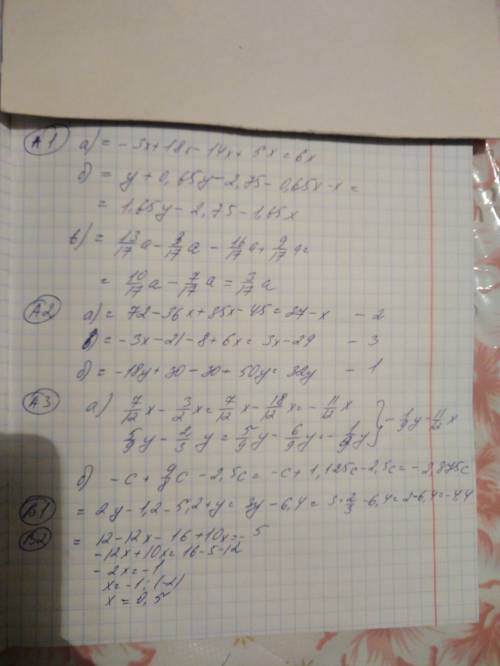 А1 а) = -3x + 18x - 14x + 5x = 6x
б) = y + 0,65y - 2,75 - 0,65x - x =
= 1,65y - 2,75 - 1,65x
в) = 13/17 a - 3/17 a - 16/17 a + 9/17 a =
= 10/17 a - 7/17 a = 3/17 a
А2 а) = 72 - 36x + 35x - 45 = 27 - x - 2
= -3x - 21 - 8 + 6x = 3x - 29 - 3
б) = -18y + 30 - 30 + 50y = 32y - 1
А3 а) 7/12 x - 3/2 x = 7/12 x - 18/12 x = - 11/12 x
5/9 y - 2/3 y = 5/9 y - 6/9 y = - 1/9 y } - 1/9 y - 11/12 x
б) -c + 9/8 c - 2,5c = -c + 1,125c - 2,5c = -2,875c
В1 = 2y - 1,2 - 5,2 + y = 3y - 6,4 = 3·2/3 - 6,4 = 2 - 6,4 = -4,4
В2 = 12 - 12x - 16 + 10x = -5
-12x + 10x = 16 - 5 - 12
-2x = -1
x = -1 : (-2)
x = 0,5